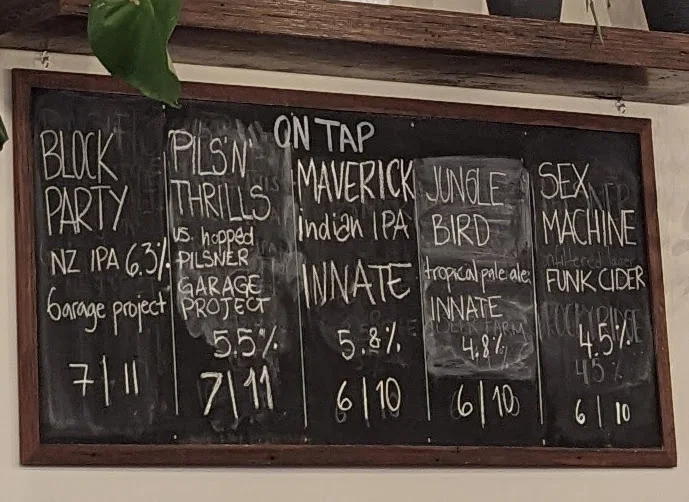 ON TAP
BLOCK
PARTY
NZ IPA 6.3%
Garage project
7|11
PILS'N'
THRILLS
us hopped
PILSNER
GARAGE
PROJECT
5.5%
7|11
MAVERICK
indian IPA
INNATE
5.8%
6|10
JUNGLE
BIRD
tropical pale ale
INNATE
4.8%
6|10
SEX
MACHINE
FUNK CIDER
4.5%
6|10